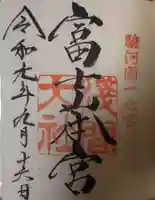 駿河國一之宮
富士本宮
淺間
大社
令和元年九月十六日